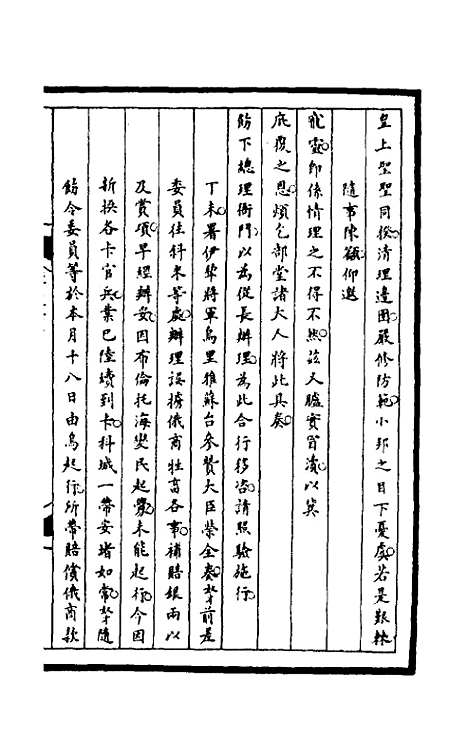 皇上聖聖同揆清理邊圉嚴修防範小邦之目下憂虞若是艱棘
隨事陳籲仰邀
飛靈卽係情理之不得不然玆又臚實冒瀆以冀
庇覆之恩煩乞部堂諸大人將此具奏
飭下總理衙門以爲從長辦理爲此合行移咨請照驗施行
丁未署伊犂將軍烏里雅蘇台參贊大臣榮全奏奴才前是
委員往科米等處辦理誤搶俄商牲畜各事補賠銀兩以
及賞項早經辦妥因布倫托海變民起釁未能起行今因
新換各卡官兵業已陸續到卡科城一帶安堵如常奴才隨
飭令委員等於本月十八日由烏起行所帶賠償俄商款